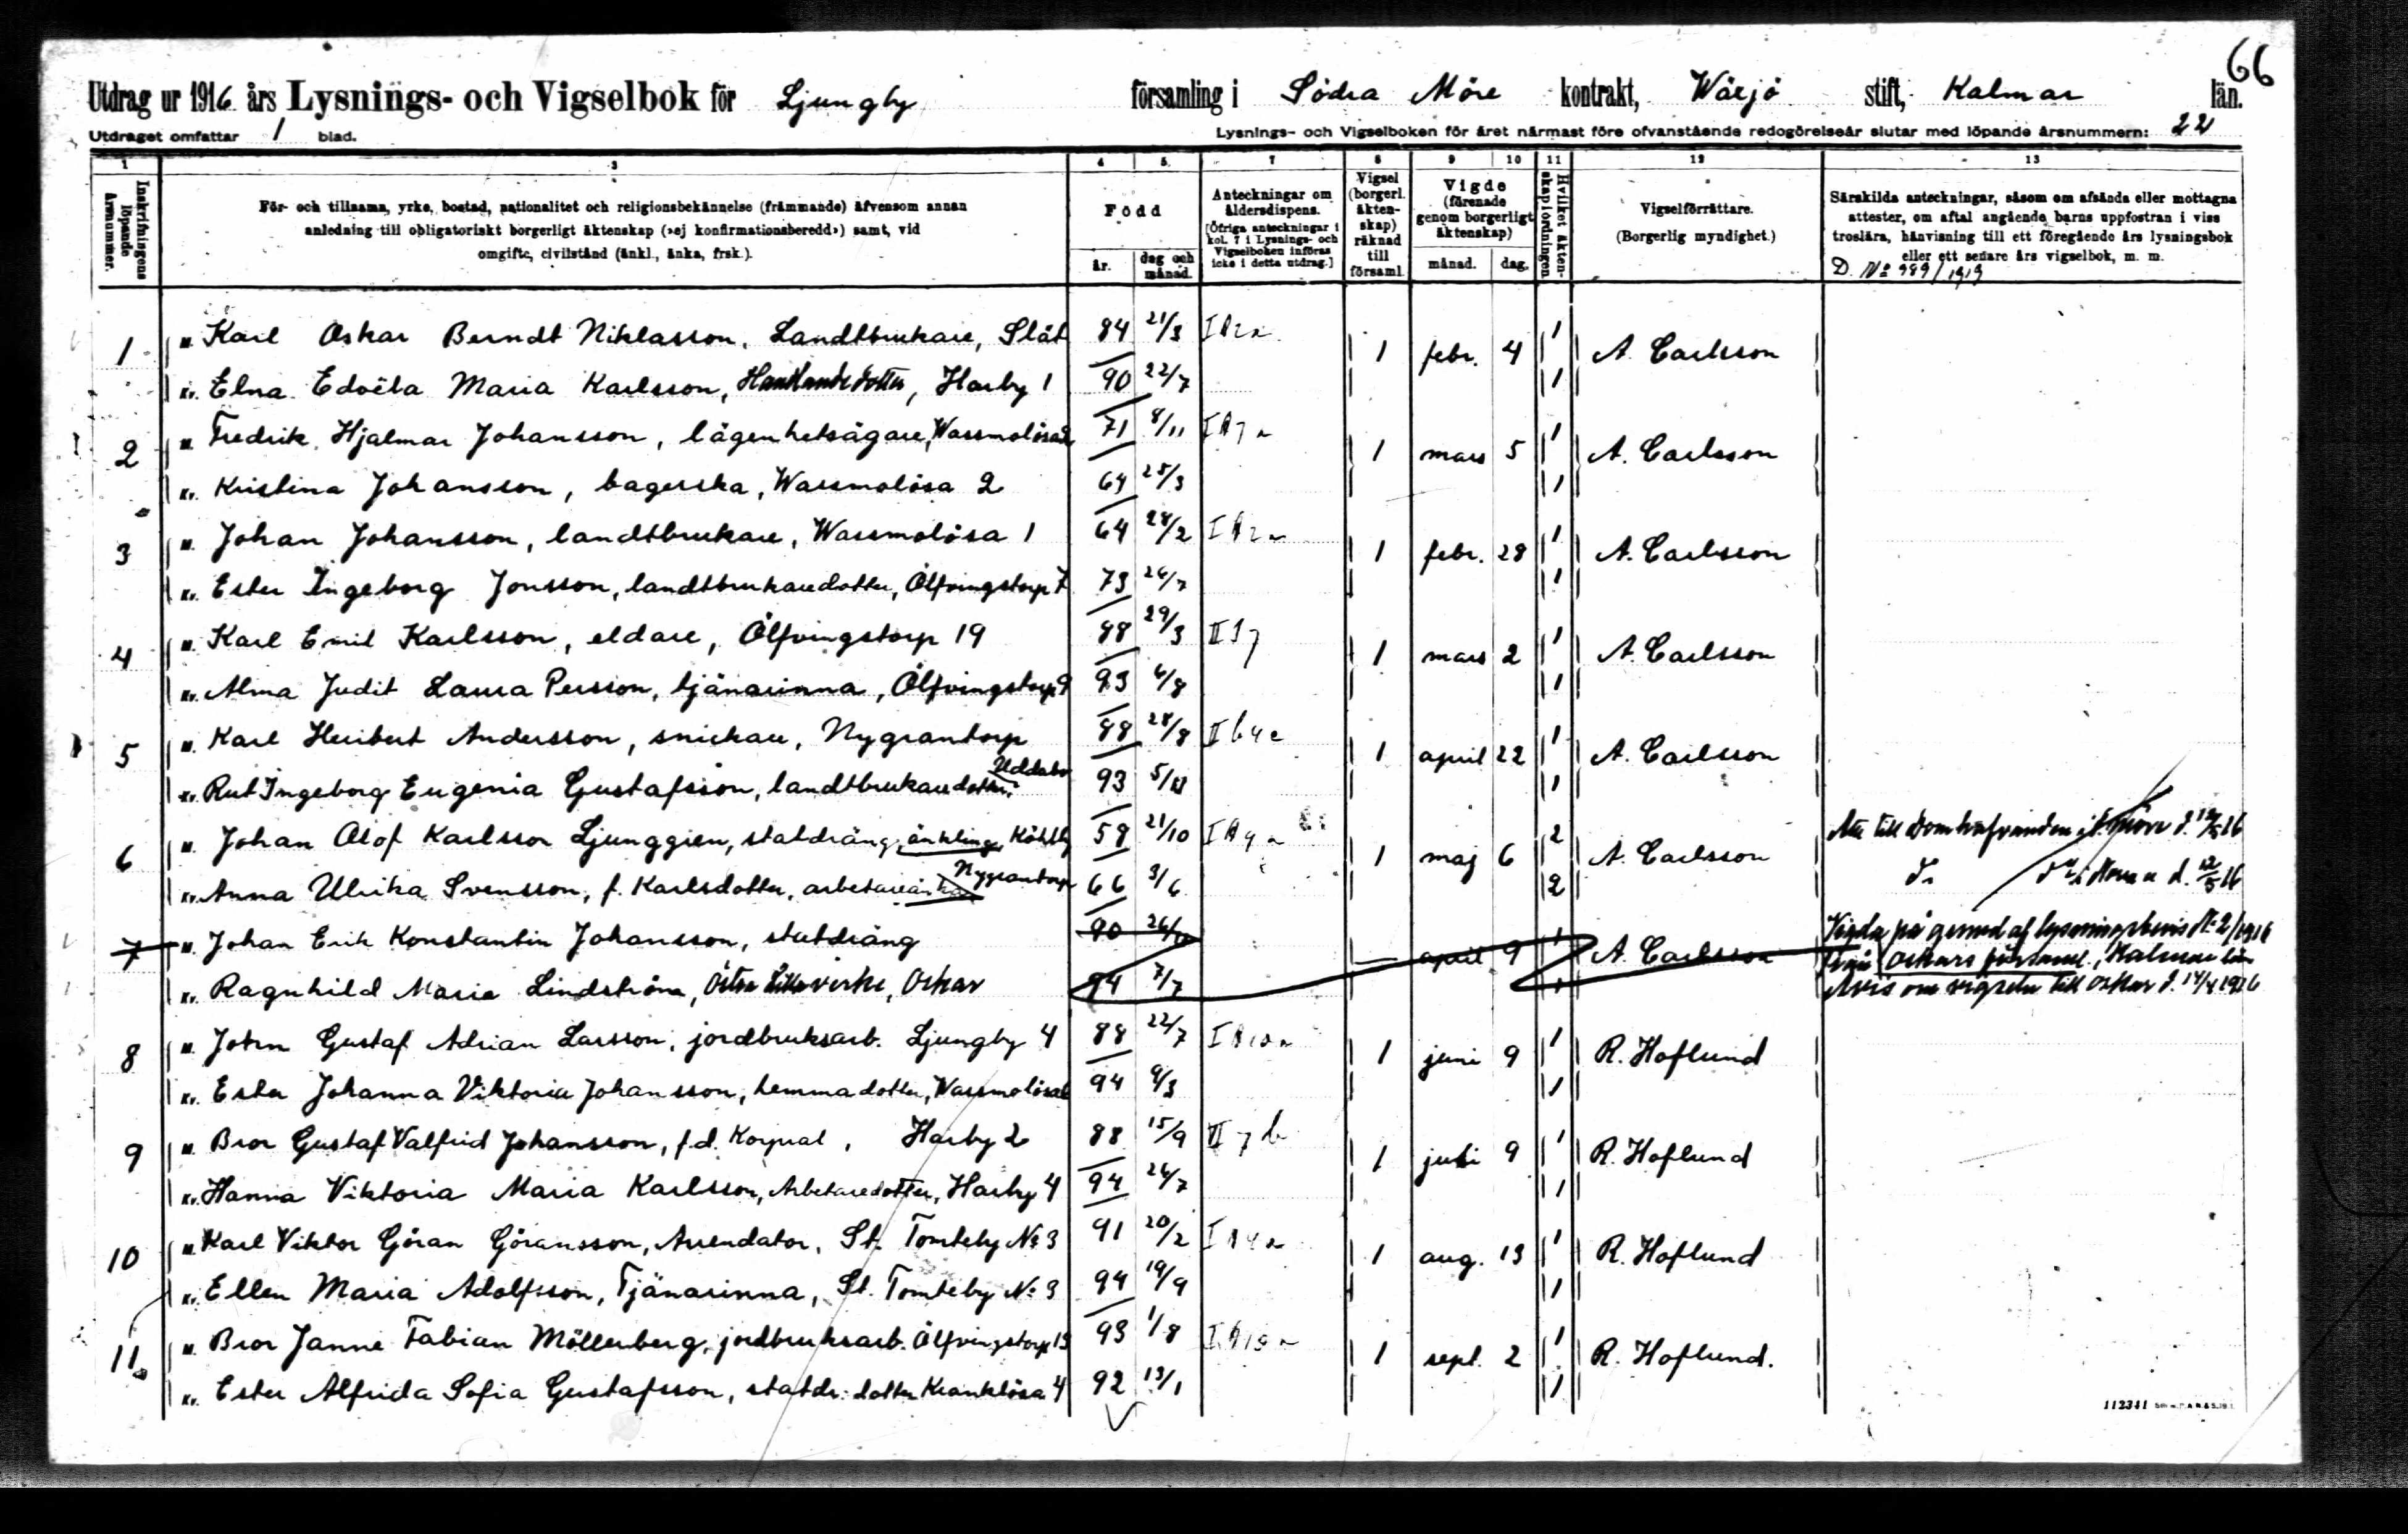 66
Utdrag ur 1916 års Lysnings- och Vigselbok för Ljungby församling i Södra Möre kontrakt, Wäxjö stift, Kalmar län.
Utdraget omfattar 1 blad. Lysnings- och Vigselboken för året närmast före ofvanstående redogörelseår slutar med löpande årsnummern: 22
1 3 4 5. 7 8 9 10 11 12 13
Inskrifningens löpande årsnummer.
För- och tillnamn, yrke, bostad, nationalitet och religionsbekännelse (främmande) äfvensom annan
anledning till obligatoriskt borgerligt äktenskap (»ej konfirmationsberedd») samt, vid
omgifte, civilstånd (änkl., änka, frsk.).
Född
år. dag och månad.
Anteckningar om åldersdispens.
[Öfriga anteckningar i kol. 7 i Lysnings- och Vigselboken införas icke i detta utdrag.]
Vigsel (borgerl. äktenskap) räknad till församl.
Vigde (förenade genom borgerligt äktenskap)
månad. dag.
Hvilket äktenskap i ordningen.
Vigselförrättare.
(Borgerlig myndighet.)
Särskilda anteckningar, såsom om afsända eller mottagna
attester, om aftal angående barns uppfostran i viss
troslära, hänvisning till ett föregående års lysningsbok
eller ett senare års vigselbok, m. m.
D. No 989/1919
1 M. Karl Oskar Berndt Niklasson, Landtbrukare, Slät 84 21/3 I A 2 a 1 febr. 4 1 A. Carlsson
Kv. Elna Edvëla Maria Karlsson, Harby 1 90 22/7 1
2 M. Fredrik Hjalmar Johansson, lägenhetsägare, Wassmolösa 2 71 8/11 I A 7 a 1 mars 5 1 A. Carlsson
Kv. Kristina Johansson, bagerska, Wassmolösa 2 64 25/3 1
3 M. Johan Johansson, landtbrukare, Wassmolösa 1 64 28/2 I A 2 a 1 febr. 28 1 A. Carlsson
Kv. Ester Ingeborg Jonsson, landtbrukaredotter, Ölfvingstorp 7 73 26/7 1
4 M. Karl Emil Karlsson, eldare, Ölfvingstorp 19 88 29/3 1 mars 2 1 A. Carlsson
Kv. Alma Judit Laura Persson, tjänarinna, Ölfvingstorp 9 93 6/8 1
5 M. Karl Heribert Andersson, snickare, Nygrantorp 88 28/8 II b 4 c 1 april 22 1 A. Carlsson
Kv. Rut Ingeborg Eugenia Gustafsson, landtbrukaredotter, 93 1
6 M. Johan Olof Karlsson Ljunggren, statdräng, änkling, 58 21/10 I A 9 a 1 maj 6 2 A. Carlsson
Kv. Anna Ulrika Svensson, f. Karlsdotter, arbetareänka Nygrantorp 66 3/6 2
7 M. Johan Erik Konstantin Johansson, statdräng 90 april 9 1 A. Carlsson
Vigda på grund af lysningsbevis No 2/1916
från Oskars församl., Kalmar län
Kv. Ragnhild Maria Lindström, Östra verke, Oskar 94 7/7 1 Avis om vigseln till Oskar d. 14/4 1916
8 M. John Gustaf Adrian Larsson, jordbruksarb. Ljungby 4 88 22/7 I A 10 a 1 juni 9 1 R. Hoflund
Kv. Ester Johanna Viktoria Johansson, hemmadotter, Wassmolösa 94 9/3 1
9 M. Bror Gustaf Valfrid Johansson, f.d. Korpral, Harby 2 88 15/9 II 7 b 1 juli 9 1 R. Hoflund
Kv. Hanna Viktoria Maria Karlsson, Arbetaredotter, Harby 4 94 26/7 1
10 M. Karl Viktor Göran Göransson, Arrendator, St. Tomteby No 3 91 20/2 I A 4 a 1 aug. 13 1 R. Hoflund
Kv. Ellen Maria Adolfsson, Tjänarinna, St. Tomteby No 3 94 19/9 1
11 M. Bror Janne Fabian Möllerberg, jordbruksarb. Ölfvingstorp 13 93 1/8 I A 10 a 1 sept. 2 1 R. Hoflund.
Kv. Ester Alfrida Sofia Gustafsson, statdr. dotter Kranklösa 4 92 13/1 1
112341